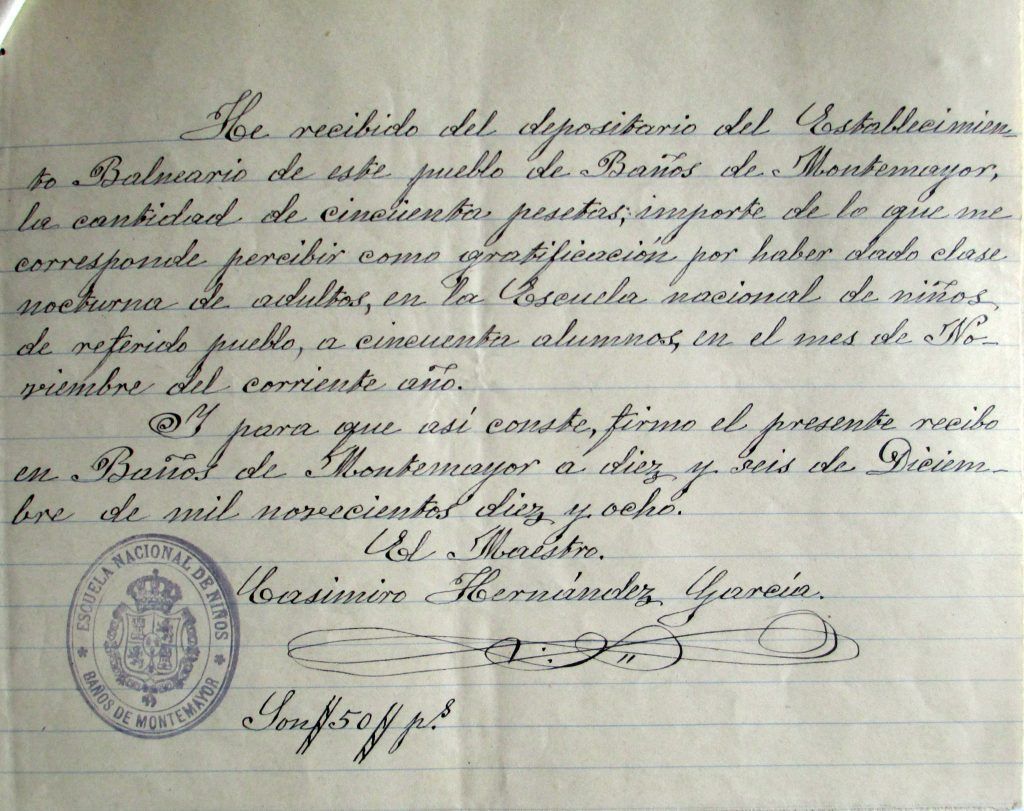 He recibido del depositario del Establecimien-
to Balneario de este pueblo de Baños de Montemayor,
la cantidad de cincuenta pesetas, importe de lo que me
corresponde percibir como gratificación por haber dado clase
nocturna de adultos, en la Escuela nacional de niños
de referido pueblo, a cincuenta alumnos, en el mes de No-
viembre del corriente año.
Y para que así conste, firmo el presente recibo
en Baños de Montemayor a diez y seis de Diciem-
bre de mil novecientos diez y ocho.
El Maestro.
Casimiro Hernández García.
ESCUELA NACIONAL DE NIÑOS
* BAÑOS DE MONTEMAYOR *
Son # 50 # p.s